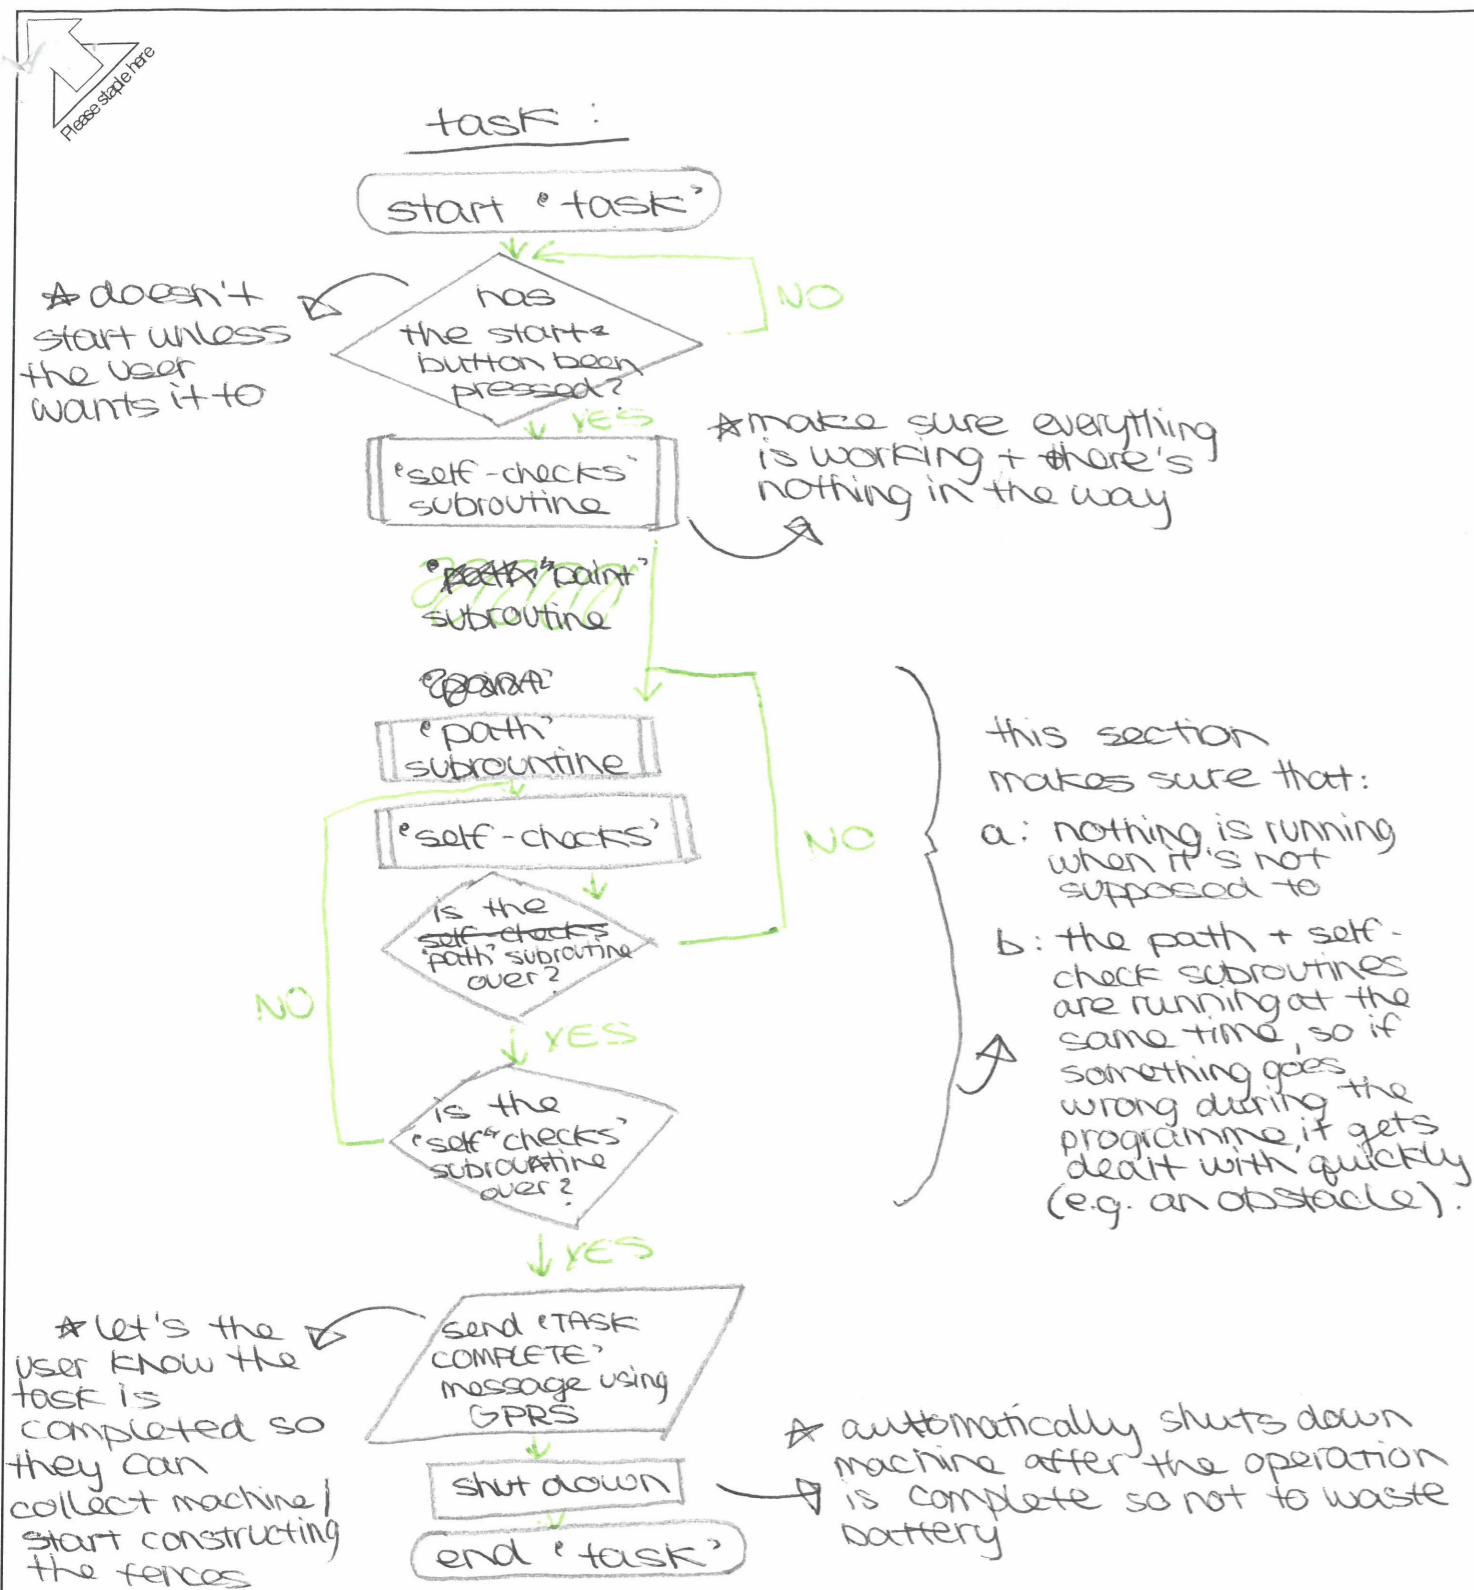 Please staple here
task :
start ‘task’
has
the start
button been
pressed?
NO
YES
☆ doesn't
start unless
the user
wants it to
‘self-checks’
subroutine
☆ make sure everything
is working + there's
nothing in the way
"paint’
subroutine
‘path’
subrountine
‘self-checks’
is the
self-checks
‘path’ subroutine
over?
NO
YES
is the
‘self-checks’
subroutine
over?
NO
YES
this section
makes sure that:
a: nothing is running
when it's not
supposed to
b: the path + self-
check subroutines
are running at the
same time, so if
something goes
wrong during the
programme, it gets
dealt with quickly
(e.g. an obstacle).
send ‘TASK
COMPLETE’
message using
GPRS
☆ let's the
user know the
task is
completed so
they can
collect machine/
start constructing
the fences
shut down
☆ automatically shuts down
machine after the operation
is complete so not to waste
battery
end ‘task’